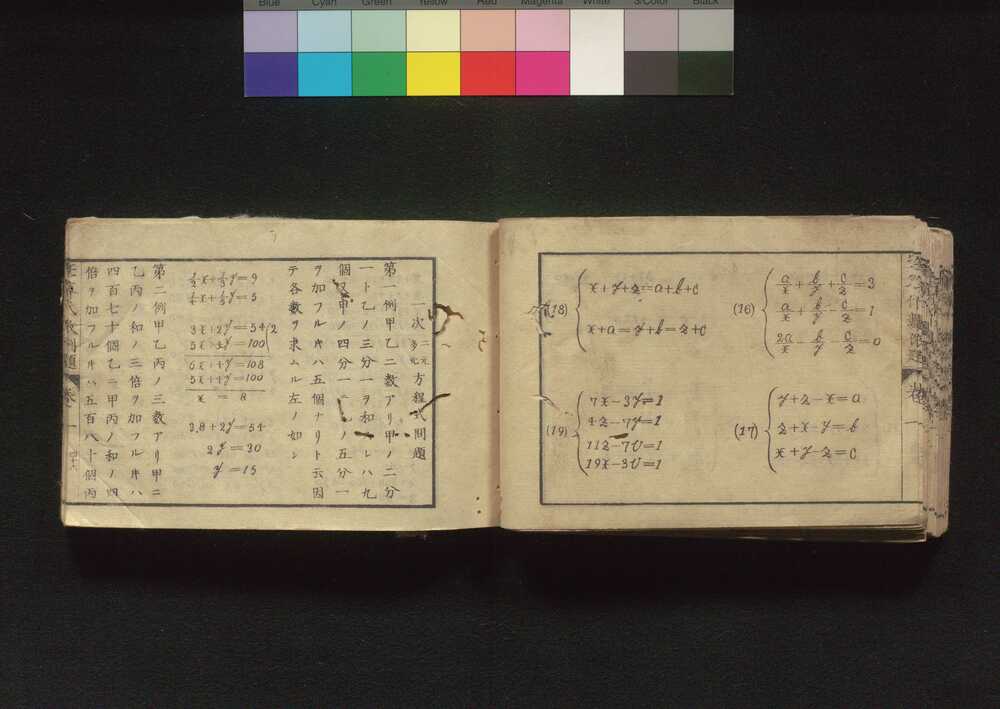 Blue Cyan Green Yellow Red Magenta White 3/Color Black
(16) { a/x + b/y + c/z = 3
a/x + b/y − c/z = 1
2a/x − b/y − c/z = 0
(17) { y+z−x=a
z+x−y=b
x+y−z=c
(18) { x+y+z=a+b+c
x+a=y+b=z+c
(19) { 7x−3y=1
4z−7y=1
11z−7u=1
19x−3u=1
一次二元多元方程式問題
第一例甲乙二数アリ甲ノ二分
一ト乙ノ三分一ヲ和スレハ九
個又甲ノ四分一ト乙ノ五分一
ヲ加フルキハ五個ナリト云因
テ各数ヲ求ムル左ノ如シ
½x+⅓y=9
¼x+⅕y=5
3x+2y=54 2
5x+4y=100
6x+4y=108
5x+4y=100
x = 8
3,8+2y=54
2y=30
y=15
第二例甲乙丙ノ三数アリ甲ニ
乙丙ノ和ノ三倍ヲ加フルキハ
四百七十個乙ニ甲丙ノ和ノ四
倍ヲ加フルキハ五百八十個丙